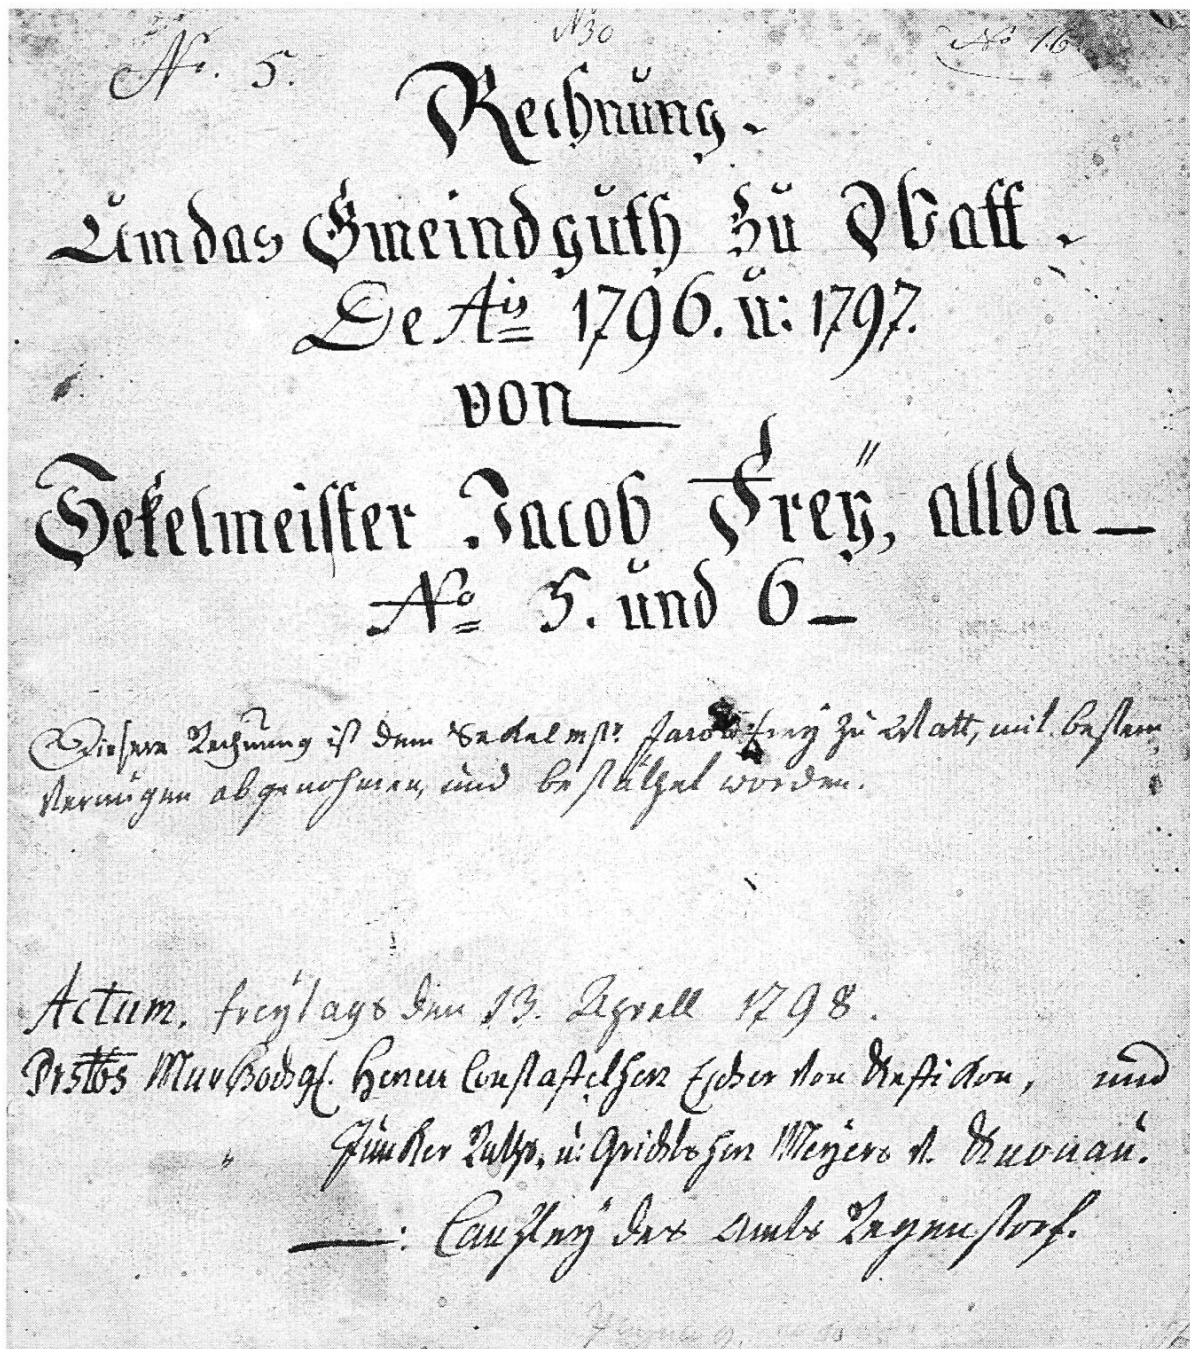 No. 5.
N 30
No 16
Rechnung.
Um das Gmeindguth zu Watt.
De Ais 1796. u: 1797.
von
Sekelmeister Jacob Freÿ, allda
No 5. und 6
Diesere Rechnung ist dem Sekelmstr Jacob Freÿ zu Watt, mit bestem
Vernügen abgenohmen, und bestäthet worden.
Actum, Freytags den 13. Aprell 1798.
Prstbs Herren Constafelherr Escher von Kefikon, und
" Junker Raths, u: Grichtsherr Meÿers v. Knonau.
: Canzleÿ des Amts Regenstorf.